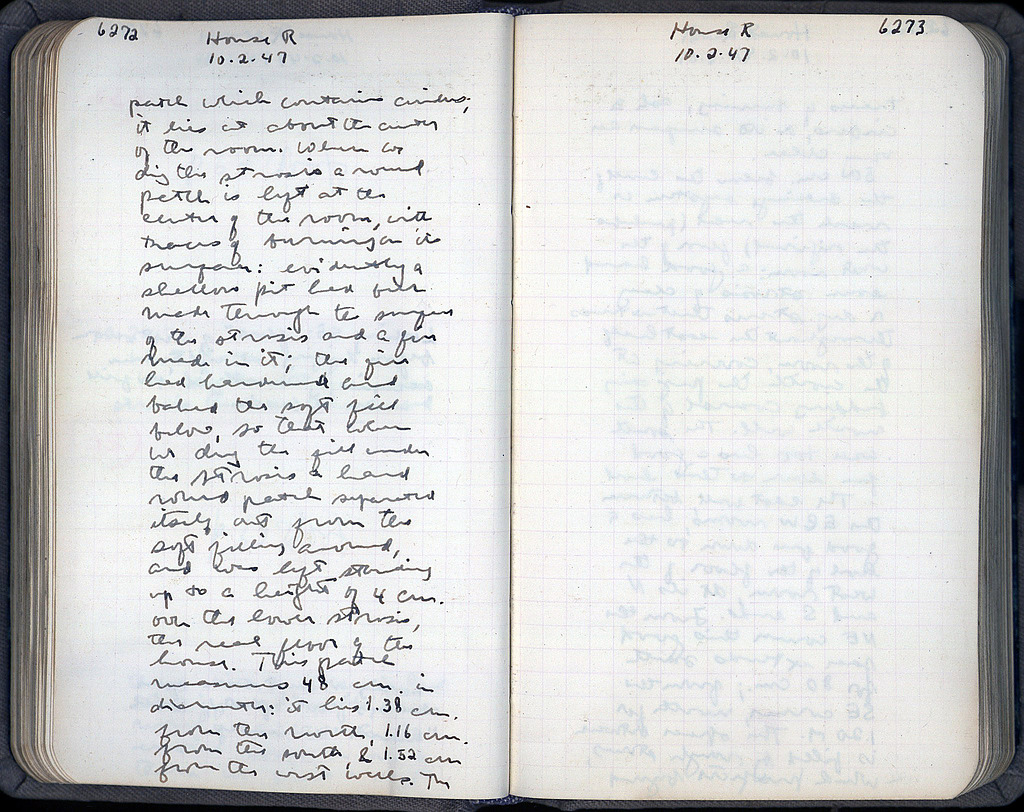 6272
House R
10.2.47
patch which contains cinders;
it lies at about the center
of the room. When we
dug this strosis a round
patch is left at the
center of the room, with
traces of burning on its
surface: evidently a
shallow pit had been
made through the surface
of the strosis and a fire
made in it; the fire
had hardened and
baked the soft fill
below, so that when
we dug the fill under
the strosis a hard
round patch separated
itself out from the
soft filling around,
and was left standing
up to a height of 4 cm.
over the lower strosis,
the real floor of the
house. This patch
measures 48 cm. in
diameter: it lies 1.38 cm.
from the north, 1.16 cm.
from the south, & 1.52 cm
from the west walls. The
House R
10.2.47
6273